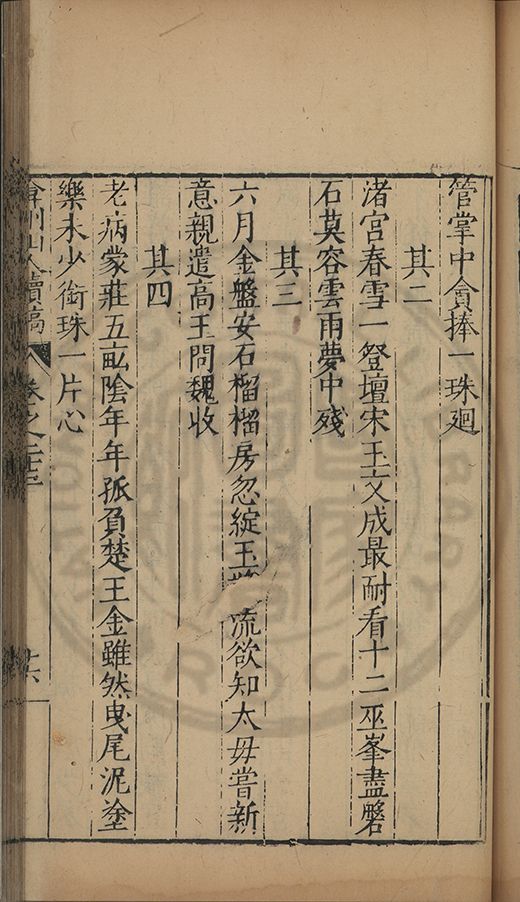 管掌中貪捧一珠廻
其二
渚宮春雪一登壇宋玉文成最耐看十二巫峯盡磐
石莫容雲雨夢中殘
其三
六月金盤安石榴榴房忽綻玉流欲知太毋嘗新
意親遣高王問魏收
其四
老病蒙莊五畝陰年年孤負楚王金雖然曳尾泥塗
樂未少銜珠一片心
弇州山人續稿 卷之二十